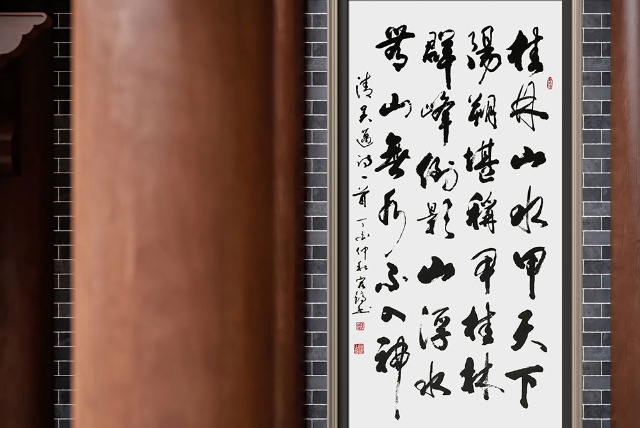 桂林山水甲天下
陽朔堪稱甲桂林
群峰倒影山浮水
無山無水不入神
清吴邁诗一首丁酉仲秋